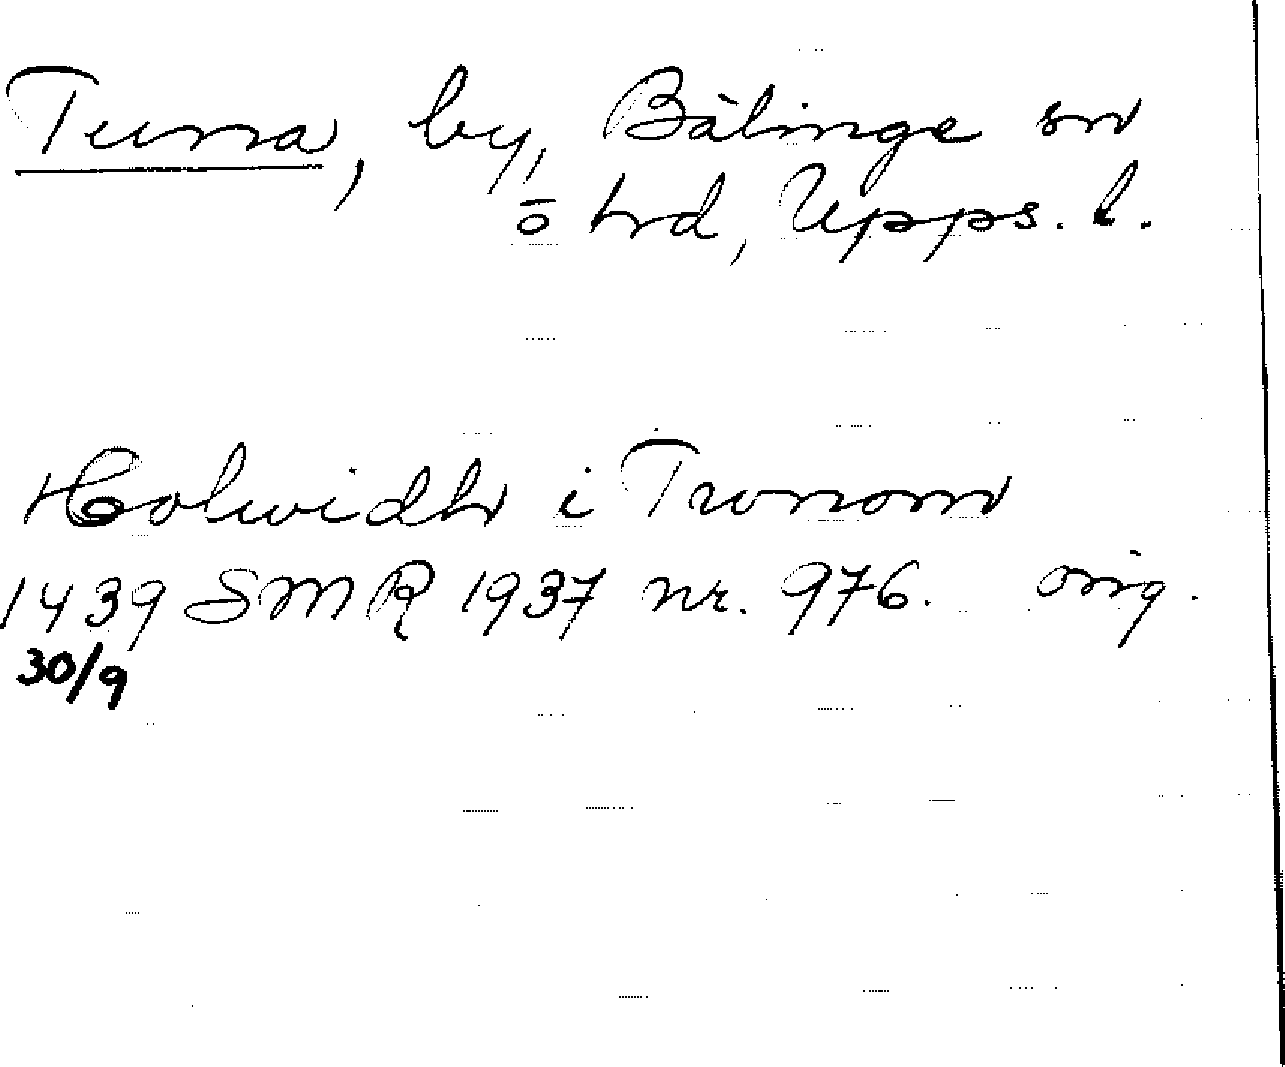 Tuna, by, Bälinge sn
ō hd, Upps. l.
Holwidh i Twnom
1439 SMR 1937 nr. 976. orig.
30/9